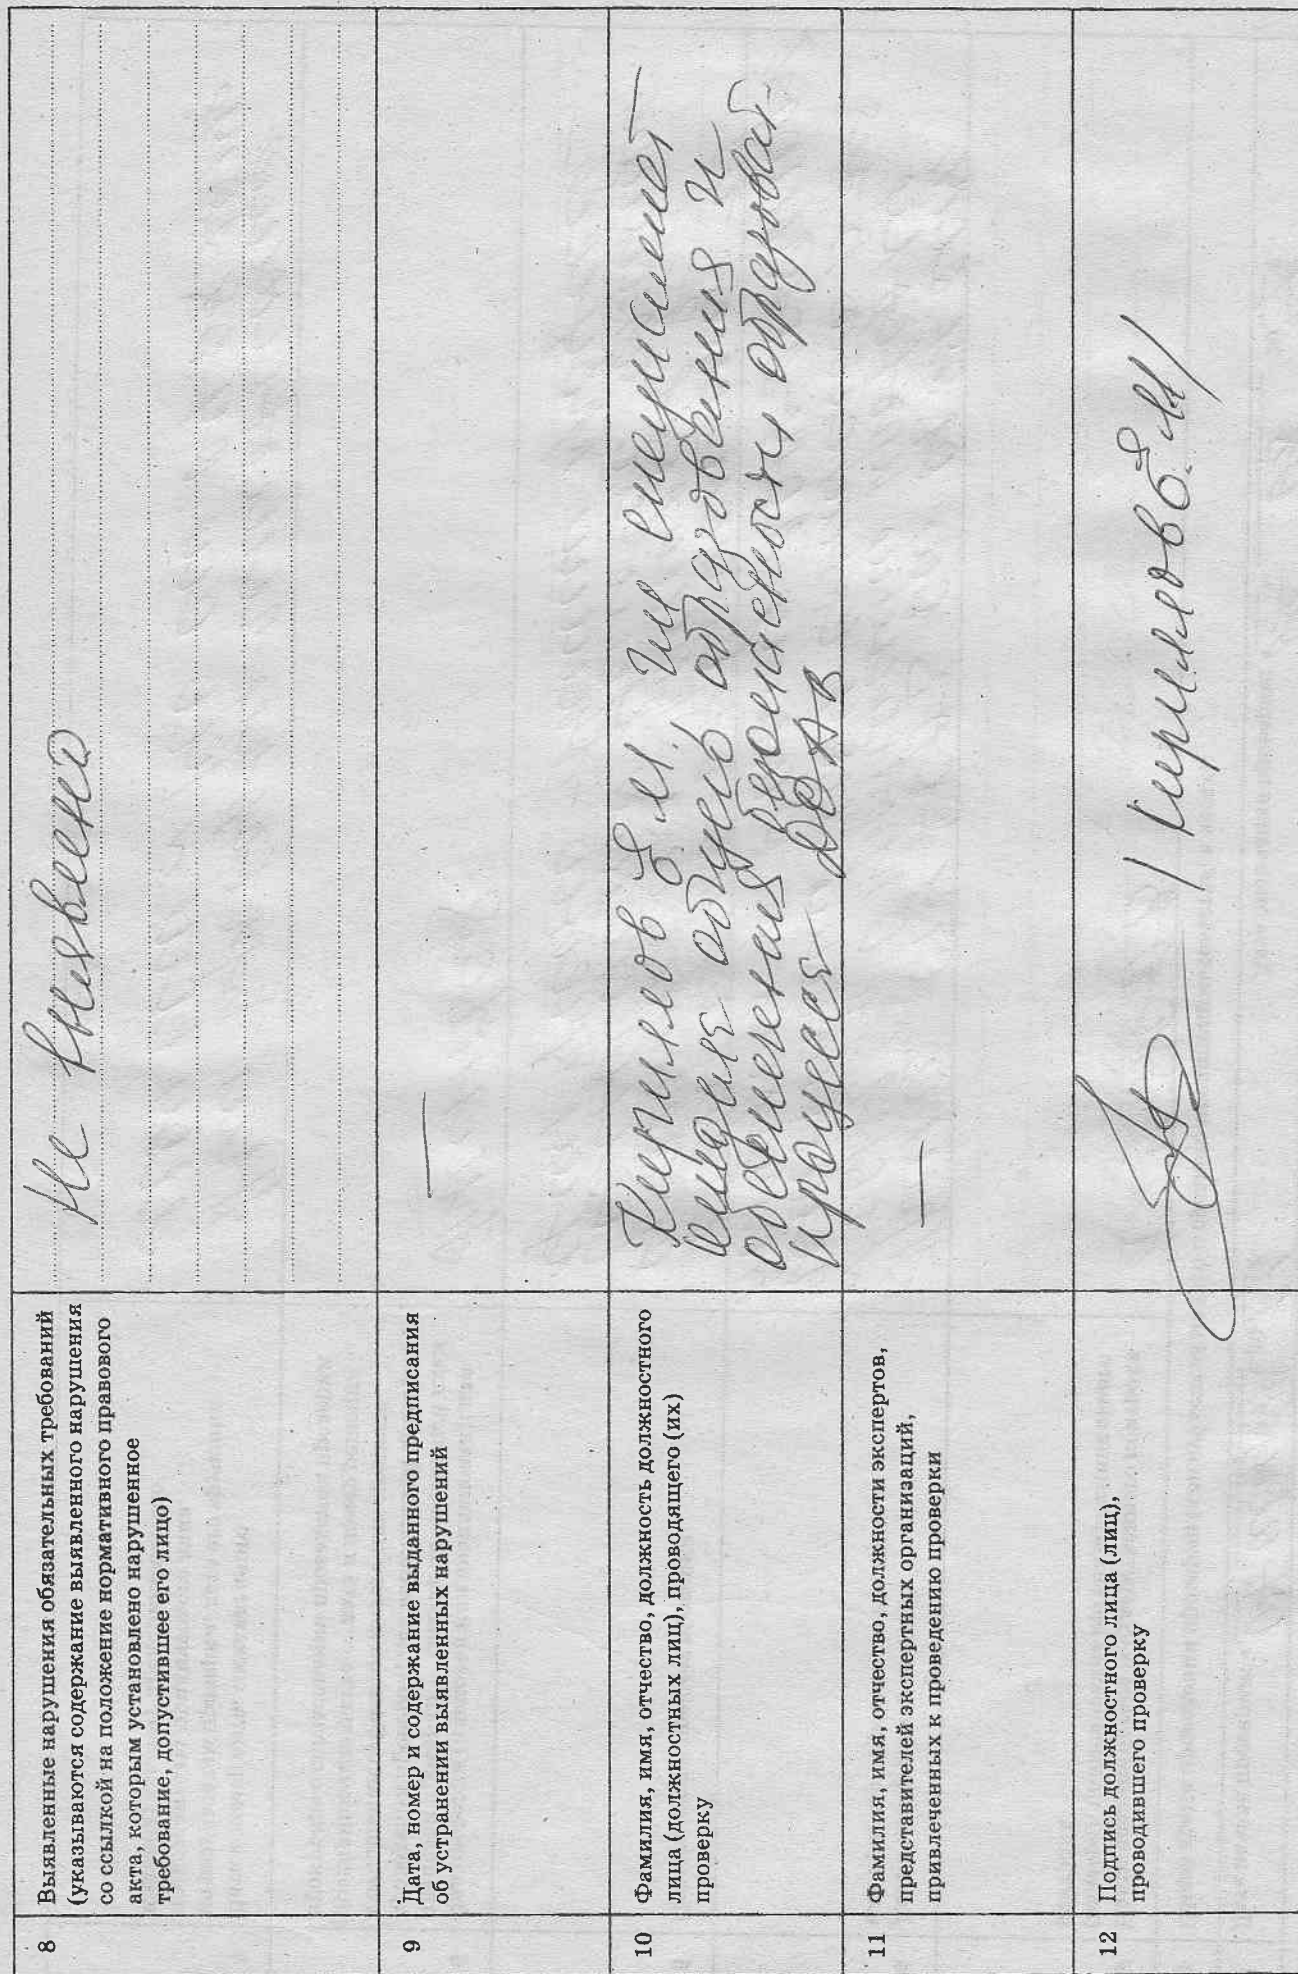 8
Выявленные нарушения обязательных требований
(указываются содержание выявленного нарушения
со ссылкой на положение нормативного правового
акта, которым установлено нарушенное
требование, допустившее его лицо)
Не выявлено
9
Дата, номер и содержание выданного предписания
об устранении выявленных нарушений
—
10
Фамилия, имя, отчество, должность должностного
лица (должностных лиц), проводящего (их)
проверку
Кириллов Е.М. гл. специалист
отдела общего образования и
обеспечения безопасности образоват-
процесса ДОАВ
11
Фамилия, имя, отчество, должности экспертов,
представителей экспертных организаций,
привлеченных к проведению проверки
—
12
Подпись должностного лица (лиц),
проводившего проверку
/ Кириллов Е.М/